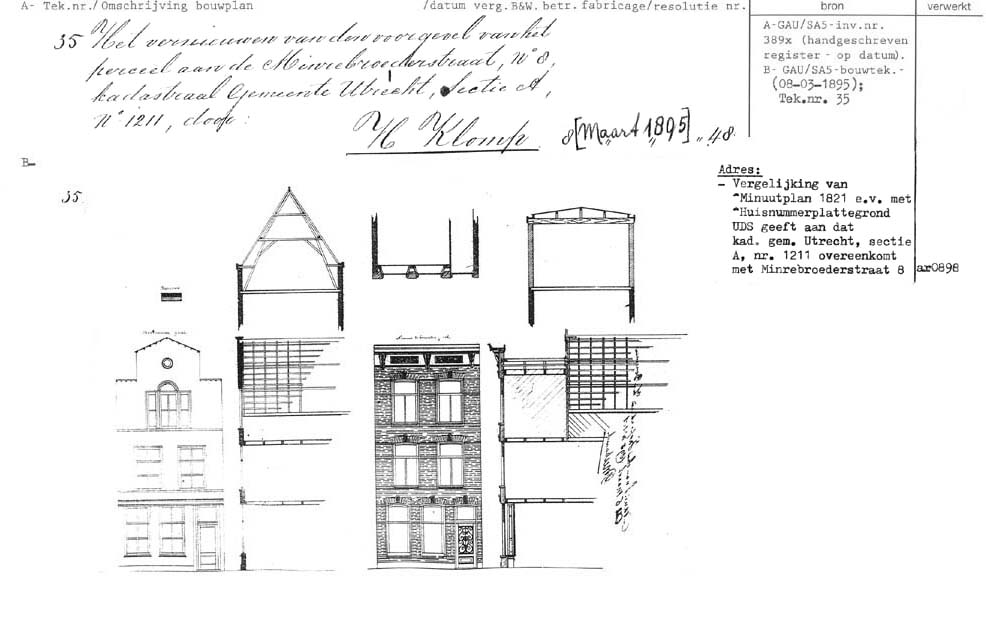 A- Tek.nr./Omschrijving bouwplan /datum verg.B&W. betr. fabricage/resolutie nr. bron verwerkt
35 Het vernieuwen van den voorgevel van het
perceel aan de Minrebroederstraat, No 8,
kadastraal Gemeente Utrecht, Sectie A,
No 1211, door:
H Klomp. 8 [Maart 1895] „ 48.
A-GAU/SA5-inv.nr.
389x (handgeschreven
register - op datum).
B- GAU/SA5-bouwtek.-
(08-03-1895);
Tek.nr. 35
B-
35.
Adres:
- Vergelijking van
"Minuutplan 1821 e.v. met
"Huisnummerplattegrond
UDS geeft aan dat
kad. gem. Utrecht, sectie
A, nr. 1211 overeenkomt
met Minrebroederstraat 8 ar0898